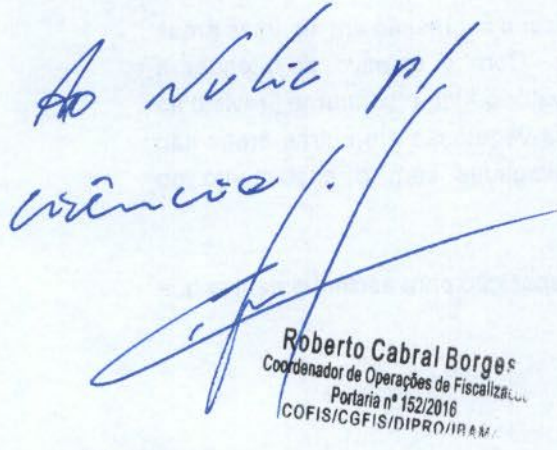 Ao Nulic p/
ciência.
Roberto Cabral Borges
Coordenador de Operações de Fiscalização
Portaria nº 152/2016
COFIS/CGFIS/DIPRO/IBAMA